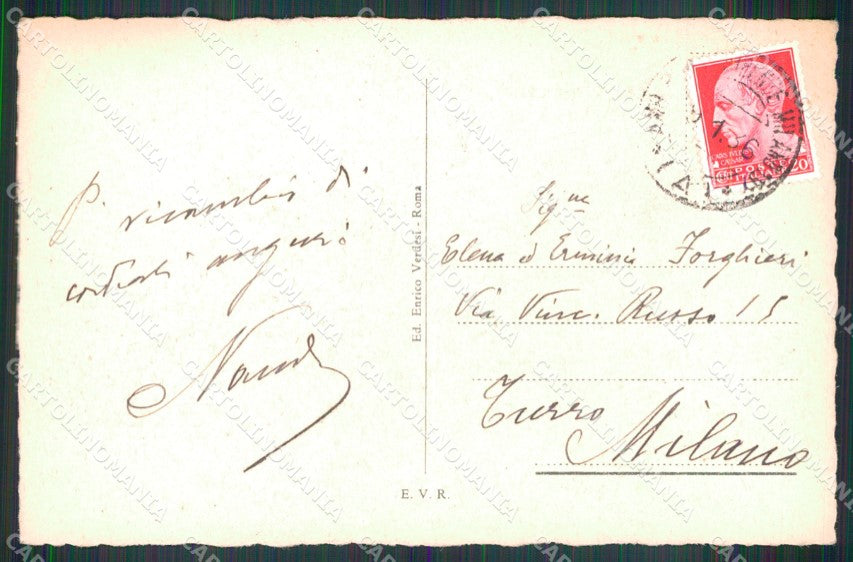 P. ricambio di
cordiali auguri
Ed. Enrico Verdesi - Roma
E. V. R.
Sig.ne
Elena ed Erminia Forghieri
Via Vinc. Russo 15
Turro
Milano
POSTE
ITALIANE
20
CARTOLINOMANIA